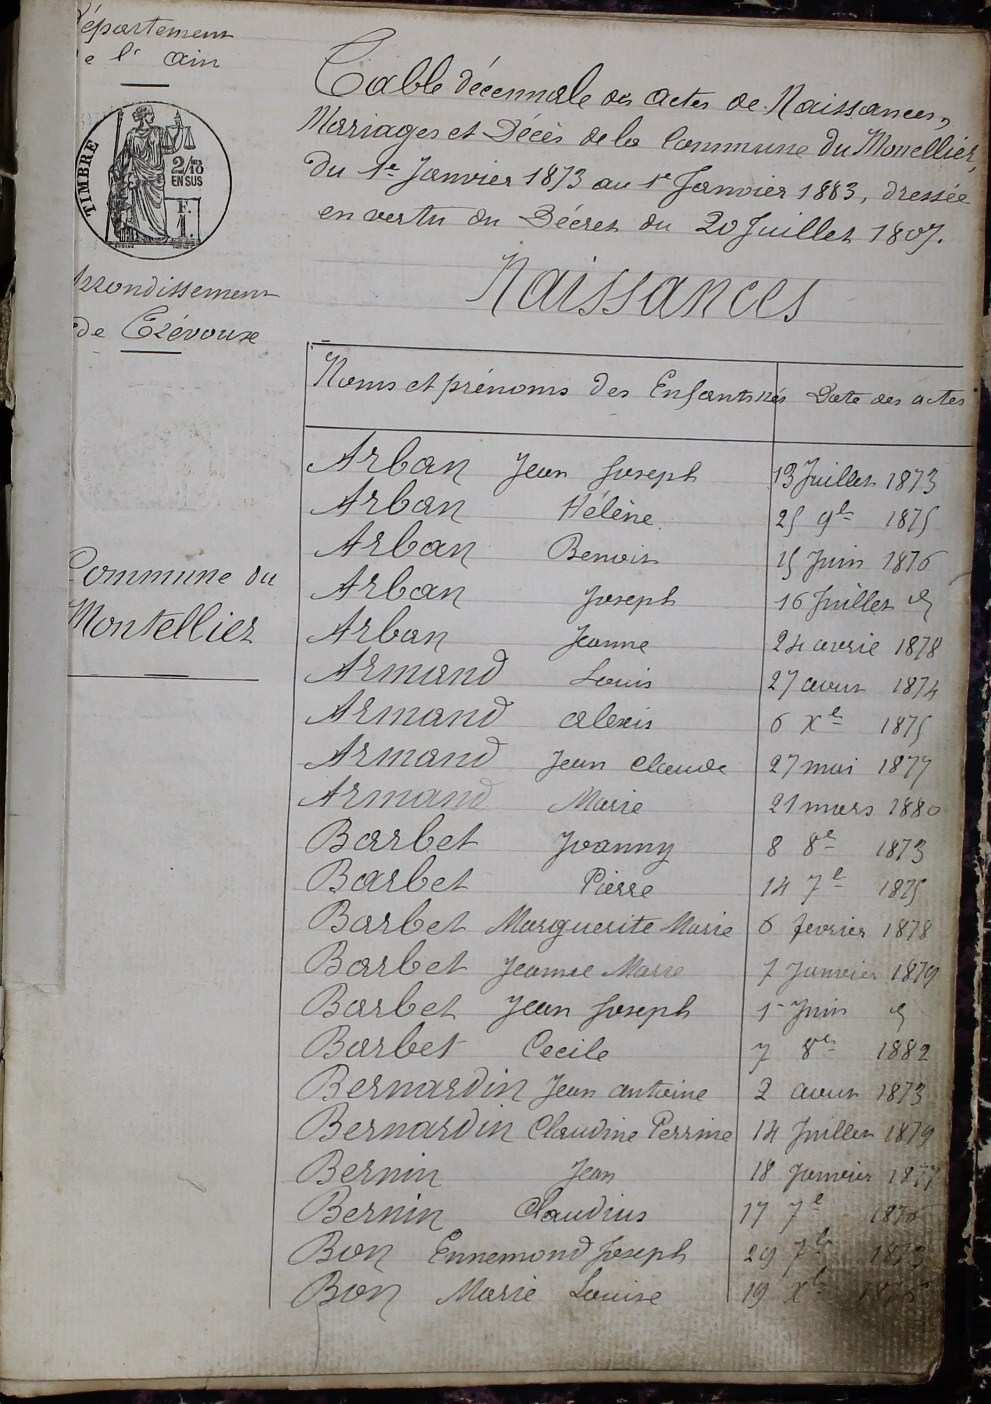 Département
de l' Ain
TIMBRE
2/10
EN SUS
F.
1.
Arrondissement
de Trévoux
Commune du
Montellier
Table décennale des actes de Naissances,
Mariages et Décès de la Commune du Montellier,
du 1er Janvier 1873 au 1er Janvier 1883, dressée
en vertu du Décret du 20 Juillet 1807.
Naissances
Noms et prénoms des Enfants nés Date des actes
Arban Jean Joseph 13 Juillet 1873
Arban Hélène 25 9b 1875
Arban Benoit 15 Juin 1876
Arban Joseph 16 Juillet d
Arban Jeanne 24 avril 1878
Armand Louis 27 aout 1874
Armand Alexis 6 Xb 1875
Armand Jean Claude 27 mai 1877
Armand Marie 21 mars 1880
Barbet Joanny 8 8b 1873
Barbet Pierre 14 7b 1875
Barbet Marguerite Marie 6 fevrier 1878
Barbet Jeanne Marie 7 Janvier 1879
Barbet Jean Joseph 1er Juin d
Barbet Cecile 7 8b 1882
Bernardin Jean Antoine 2 aout 1873
Bernardin Claudine Perrine 14 Juillet 1879
Bernin Jean 18 Janvier 1877
Bernin Claudius 17 7b
Bon Ennemond Joseph 29 7b 1873
Bon Marie Louise 19 Xb